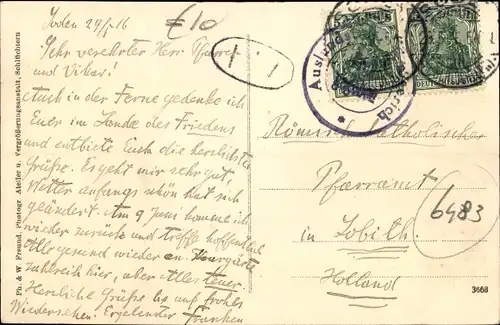 Soden 24/5 16
£10
Sehr verehrter Herr Pfarrer
und Vikar!
Auch in der Ferne gedenke ich
Euer im Lande des Friedens
und entbiete Euch die herzlichste
Grüße. Es geht mir sehr gut,
Wetter anfangs schön hat sich
geändert. Am 9 Juni komme ich
wieder zurück und treffe hoffentlich
Alle gesund wieder an. Kurgäste
zahlreich hier, aber Alles teuer
Herzliche Grüße bis auf frohes
Wiedersehen. Ergebenster Franken
Römisch Katholischer
Pfarramt
in Lobith
Holland
6483
3668
Ph. & W. Freund, Photogr. Atelier u. Vergrößerungsanstalt, Schlüchtern
DEUTSCHES REICH
DEUTSCHES REICH